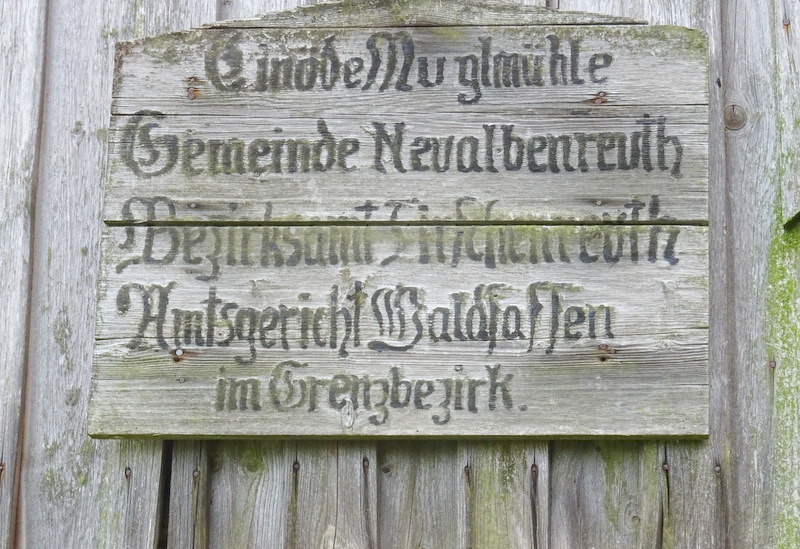 Einöde Muglmühle
Gemeinde Neualbenreuth
Bezirksamt Tirschenreuth
Amtsgericht Waldsassen
im Grenzbezirk.